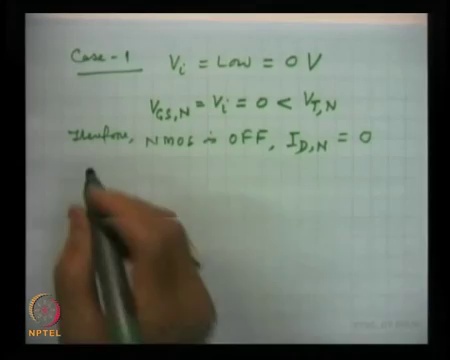 Case-1 Vi = Low = 0 V
VGS,N = Vi = 0 < VT,N
Therefore, NMOS is OFF, ID,N = 0
NPTEL